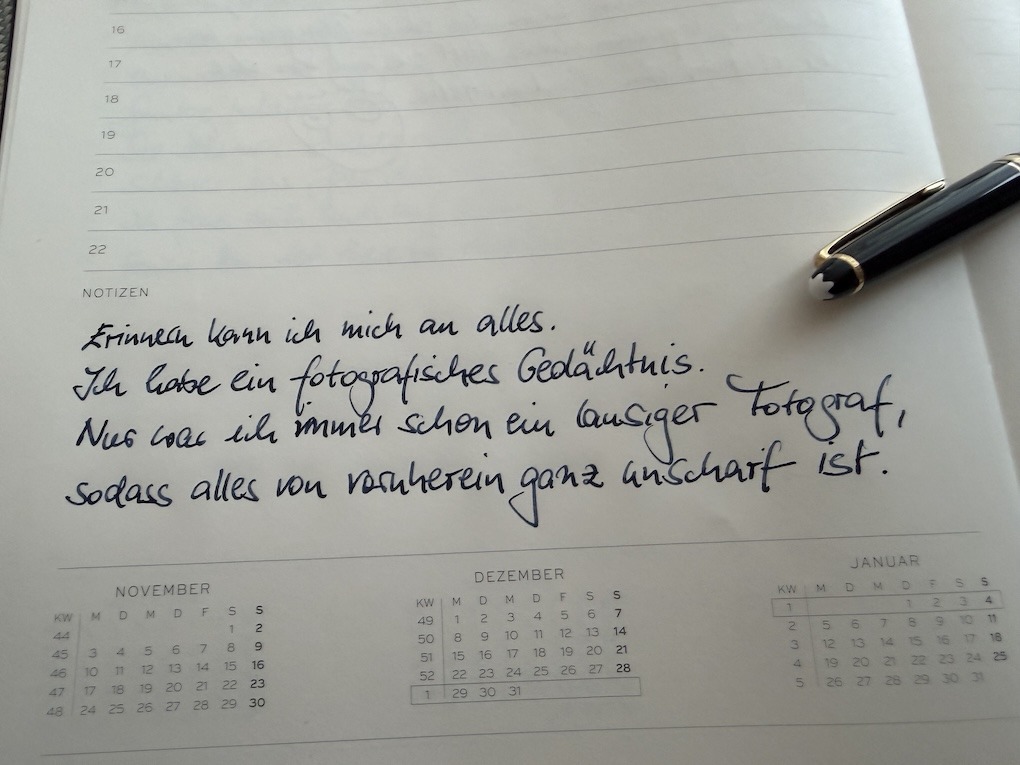 16
17
18
19
20
21
22
NOTIZEN
Erinnern kann ich mich an alles.
Ich habe ein fotografisches Gedächtnis.
Nur war ich immer schon ein lausiger Fotograf,
sodass alles von vornherein ganz unscharf ist.
NOVEMBER
KW M D M D F S S
44 1 2
45 3 4 5 6 7 8 9
46 10 11 12 13 14 15 16
47 17 18 19 20 21 22 23
48 24 25 26 27 28 29 30
DEZEMBER
KW M D M D F S S
49 1 2 3 4 5 6 7
50 8 9 10 11 12 13 14
51 15 16 17 18 19 20 21
52 22 23 24 25 26 27 28
1 29 30 31
JANUAR
KW M D M D F S S
1 1 2 3 4
2 5 6 7 8 9 10 11
3 12 13 14 15 16 17 18
4 19 20 21 22 23 24 25
5 26 27 28 29 30 31